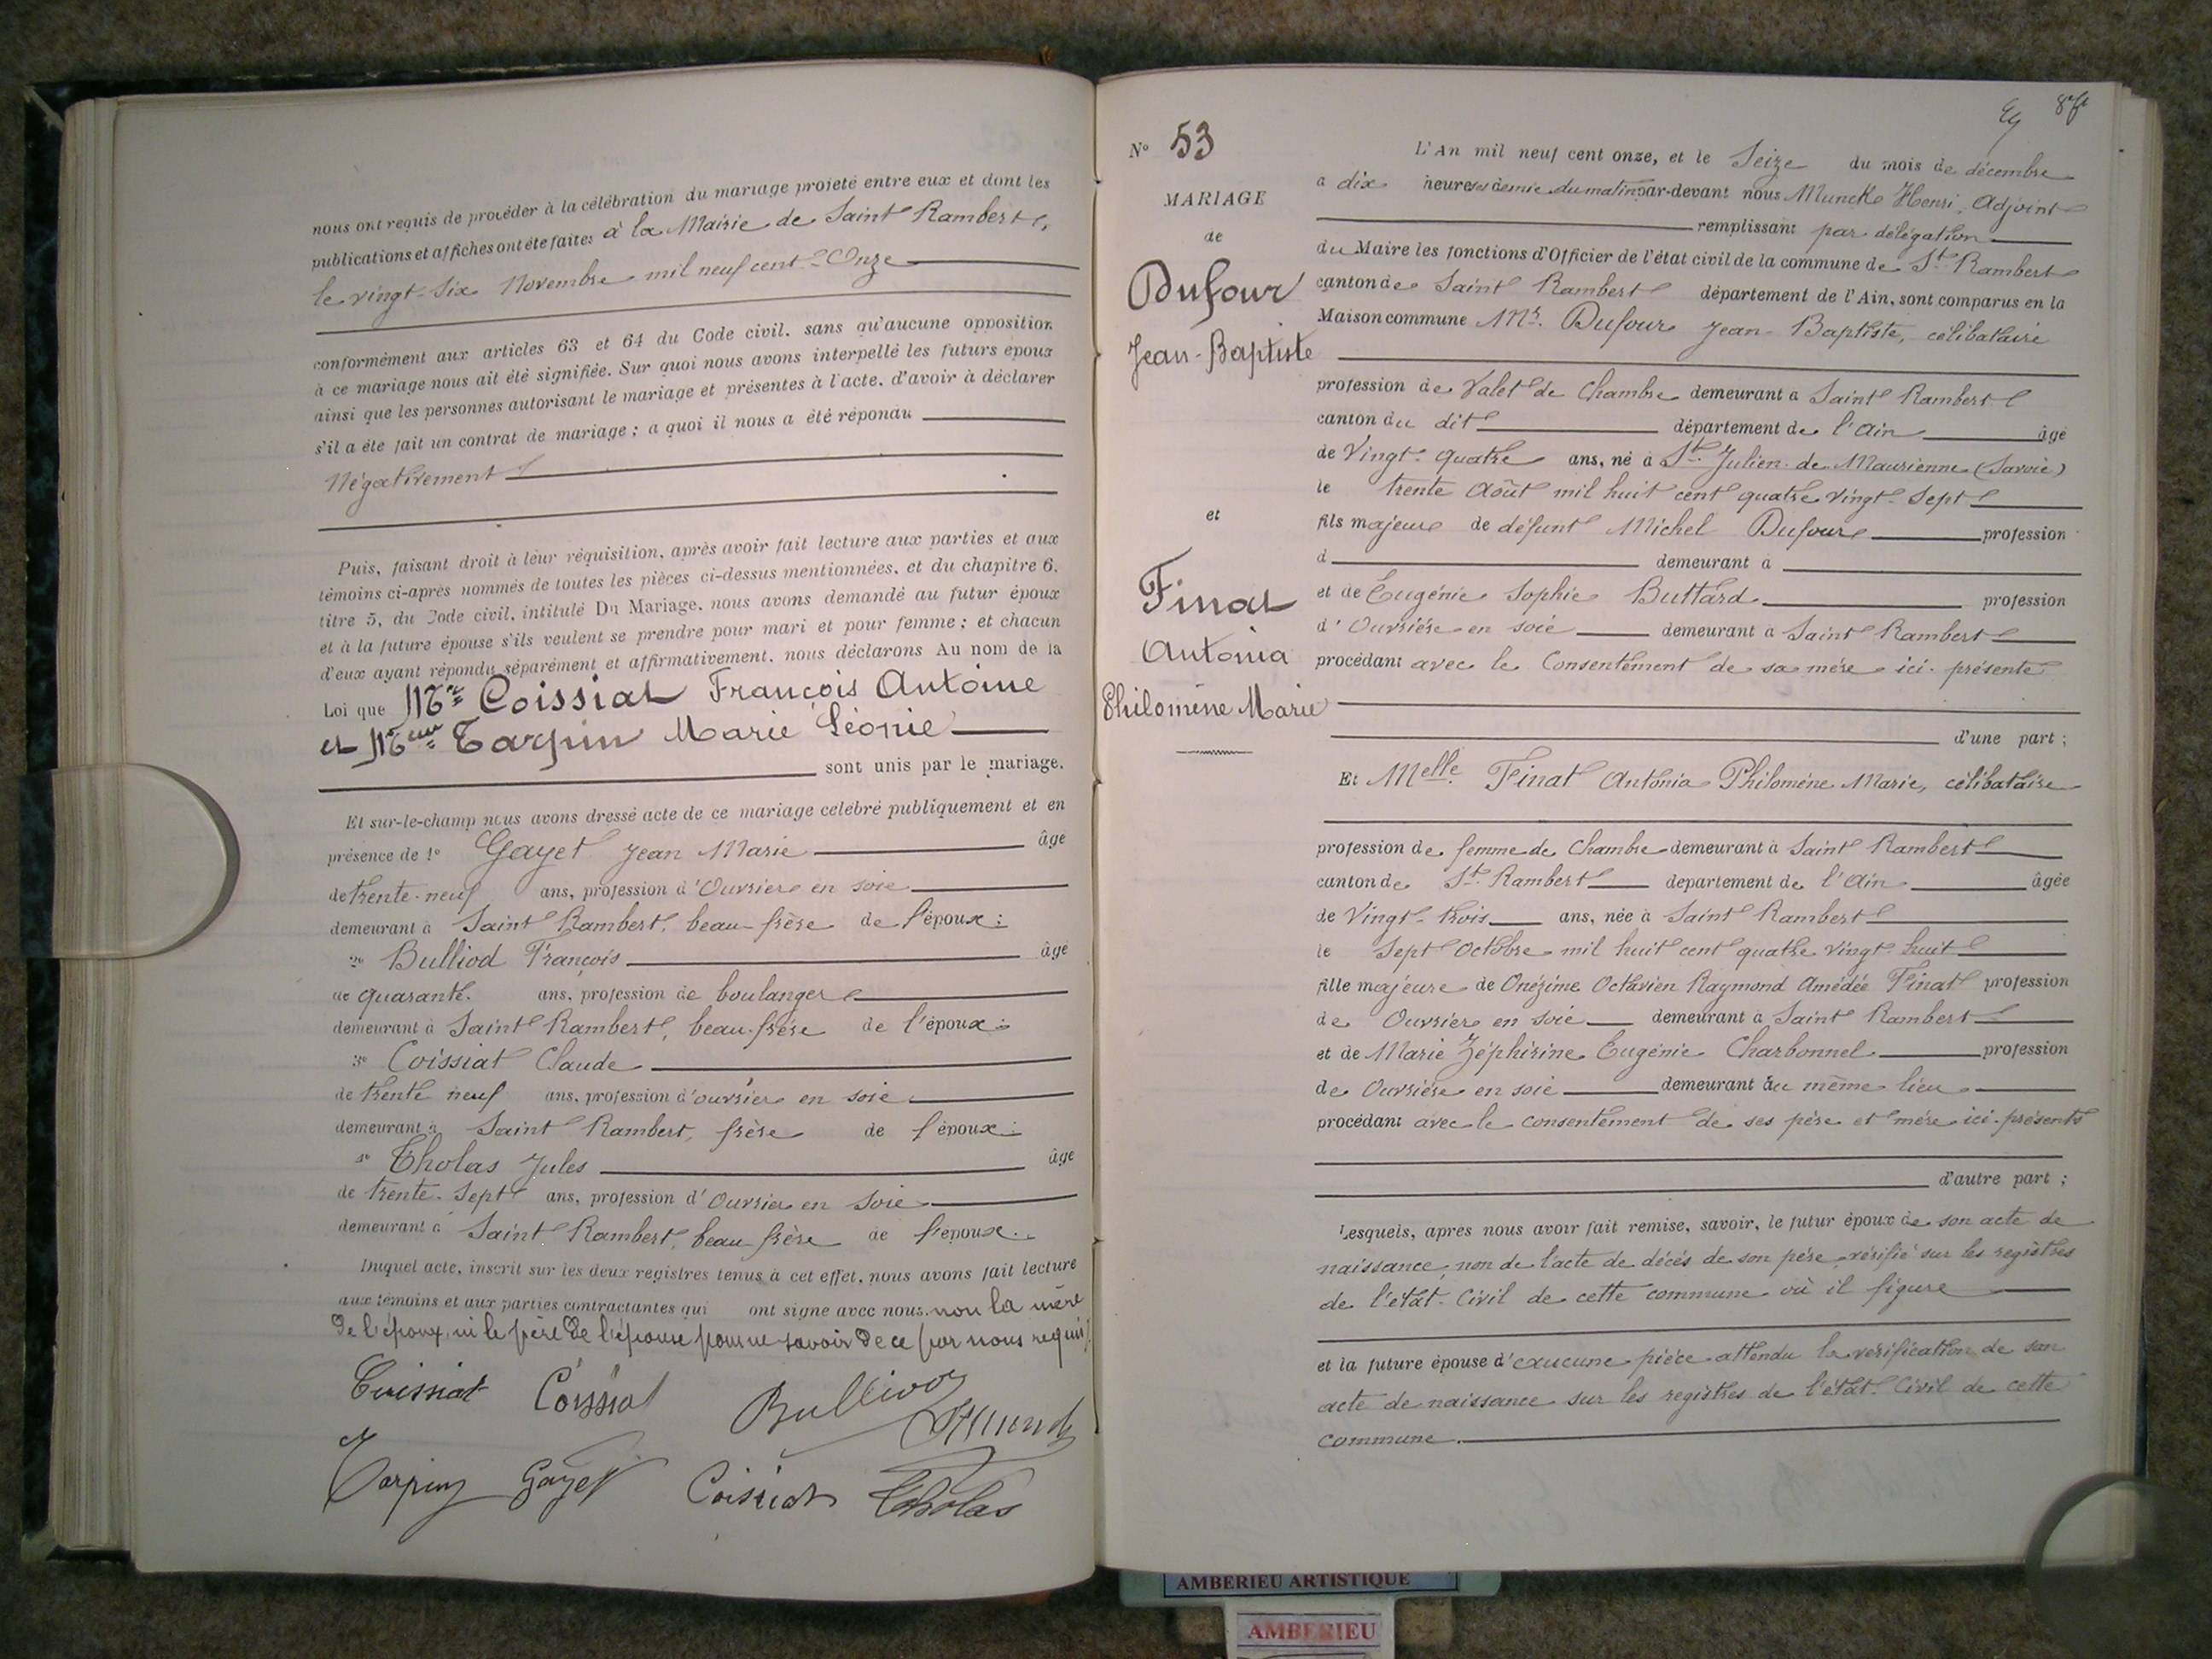 nous ont requis de procéder à la célébration du mariage projeté entre eux et dont les
publications et affiches ont été faites à la Mairie de Saint Rambert,
le vingt-six Novembre mil neuf cent Onze
conformément aux articles 63 et 64 du Code civil, sans qu'aucune opposition
à ce mariage nous ait été signifiée. Sur quoi nous avons interpellé les futurs époux
ainsi que les personnes autorisant le mariage et présentes à l'acte, d'avoir à déclarer
s'il a été fait un contrat de mariage ; a quoi il nous a été répondu
Négativement
Puis, faisant droit à leur réquisition, après avoir fait lecture aux parties et aux
témoins ci-après nommés de toutes les pièces ci-dessus mentionnées, et du chapitre 6,
titre 5, du Code civil, intitulé Du Mariage, nous avons demandé au futur époux
et à la future épouse s'ils veulent se prendre pour mari et pour femme ; et chacun
d'eux ayant répondu séparément et affirmativement, nous déclarons Au nom de la
Loi que Mr Coissiat François Antoine
et Melle Tarpin Marie Léonie
sont unis par le mariage.
Et sur-le-champ nous avons dressé acte de ce mariage célébré publiquement et en
présence de 1° Gayet Jean Marie âgé
de trente-neuf ans, profession d'Ouvrier en soie
demeurant à Saint Rambert, beau-frère de l'époux ;
2° Bulliod François âgé
de quarante ans, profession de boulanger
demeurant à Saint Rambert, beau-frère de l'époux ;
3° Coissiat Claude
de trente neuf ans, profession d'ouvrier en soie
demeurant à Saint Rambert, frère de l'époux ;
4° Tholas Jules âgé
de trente-sept ans, profession d'Ouvrier en soie
demeurant à Saint Rambert, beau frère de l'époux.
Duquel acte, inscrit sur les deux registres tenus à cet effet, nous avons fait lecture
aux témoins et aux parties contractantes qui ont signé avec nous, non la mère
de l'époux, ni le père de l'épouse pour ne savoir de ce par nous requis.
Coissiat Coissiat Bulliod HMunck
Tarpin Gayet Coissiat Tholas
87
N° 53
MARIAGE
de
Dufour
Jean-Baptiste
et
Finat
Antonia
Philomène Marie
L'An mil neuf cent onze, et le Seize du mois de décembre
a dix heures & demie du matin par-devant nous Munck Henri, Adjoint
remplissant par délégation
du Maire les fonctions d'Officier de l'état civil de la commune de St Rambert
canton de Saint Rambert département de l'Ain, sont comparus en la
Maison commune Mr. Dufour Jean-Baptiste, célibataire
profession de Valet de Chambre demeurant a Saint Rambert
canton du dit département de l'Ain âgé
de Vingt-quatre ans, né à St Julien-de-Maurienne (Savoie)
le trente Août mil huit cent quatre vingt-sept
fils majeur de défunt Michel Dufour profession
d demeurant à
et de Eugénie Sophie Buttard profession
d'Ouvrière en soie demeurant a Saint Rambert
procédant avec le Consentement de sa mère ici-présente
d'une part ;
Et Melle Finat Antonia Philomène Marie, célibataire
profession de femme de Chambre demeurant à Saint Rambert
canton de St Rambert département de l'Ain âgée
de Vingt-trois ans, née à Saint Rambert
le Sept Octobre mil huit cent quatre vingt-huit
fille majeure de Onézime Octavien Raymond Amédée Finat profession
de Ouvrier en soie demeurant à Saint Rambert
et de Marie Zéphirine Eugénie Charbonnel profession
de Ouvrière en soie demeurant au même lieu
procédant avec le consentement de ses père et mère ici-présents
d'autre part ;
Lesquels, après nous avoir fait remise, savoir, le futur époux de son acte de
naissance, non de l'acte de décès de son père vérifié sur les registres
de l'état-Civil de cette commune où il figure
et la future épouse d'aucune pièce attendu la vérification de son
acte de naissance sur les registres de l'état-Civil de cette
commune.
AMBERIEU ARTISTIQUE
AMBERIEU